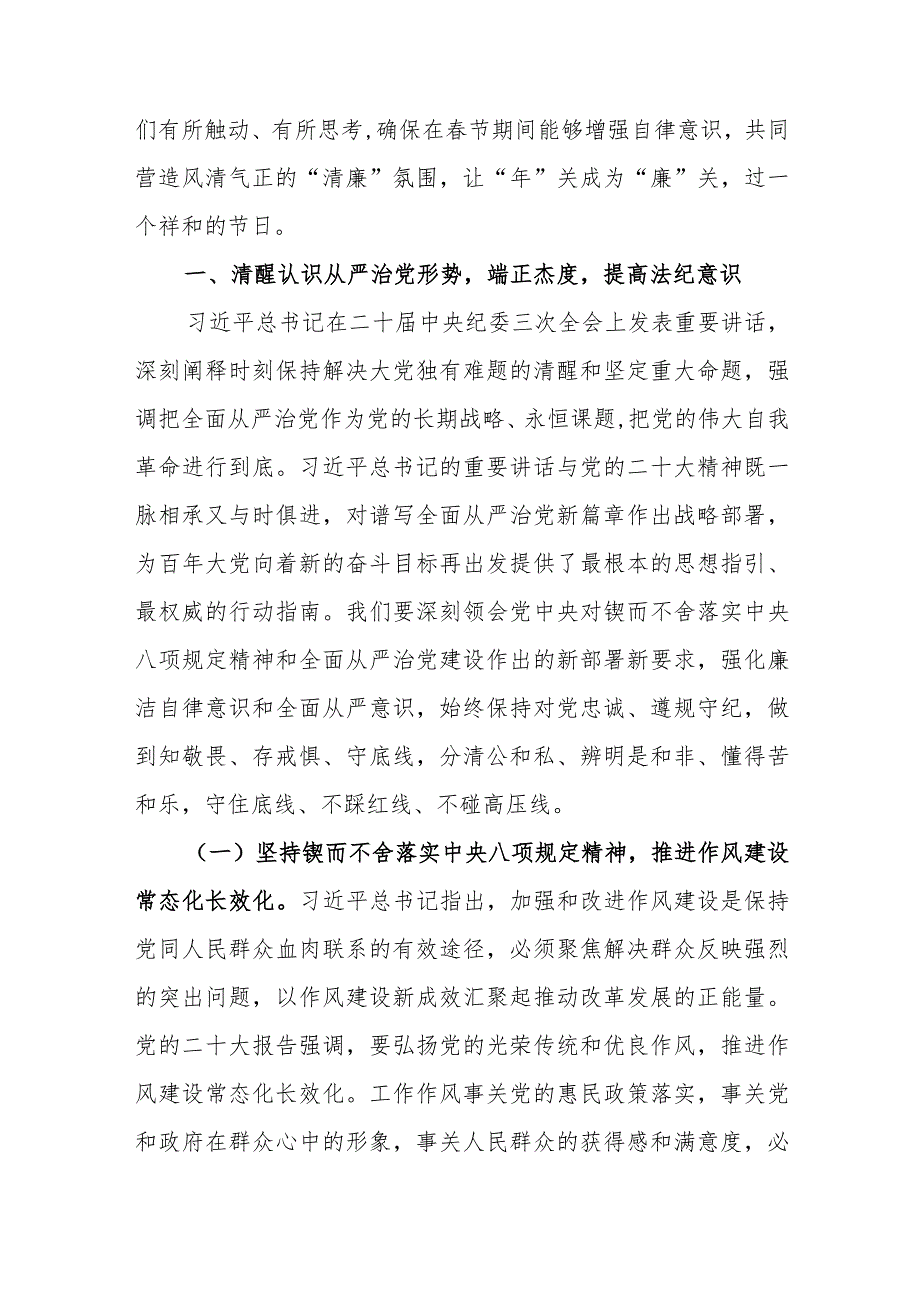 们有所触动、有所思考,确保在春节期间能够增强自律意识，共同
营造风清气正的“清廉”氛围，让“年”关成为“廉”关，过一
个祥和的节日。
一、清醒认识从严治党形势，端正杰度，提高法纪意识
习近平总书记在二十届中央纪委三次全会上发表重要讲话，
深刻阐释时刻保持解决大党独有难题的清醒和坚定重大命题，强
调把全面从严治党作为党的长期战略、永恒课题,把党的伟大自我
革命进行到底。习近平总书记的重要讲话与党的二十大精神既一
脉相承又与时俱进，对谱写全面从严治党新篇章作出战略部署，
为百年大党向着新的奋斗目标再出发提供了最根本的思想指引、
最权威的行动指南。我们要深刻领会党中央对锲而不舍落实中央
八项规定精神和全面从严治党建设作出的新部署新要求，强化廉
洁自律意识和全面从严意识，始终保持对党忠诚、遵规守纪，做
到知敬畏、存戒惧、守底线，分清公和私、辨明是和非、懂得苦
和乐，守住底线、不踩红线、不碰高压线。
（一）坚持锲而不舍落实中央八项规定精神，推进作风建设
常态化长效化。习近平总书记指出，加强和改进作风建设是保持
党同人民群众血肉联系的有效途径，必须聚焦解决群众反映强烈
的突出问题，以作风建设新成效汇聚起推动改革发展的正能量。
党的二十大报告强调，要弘扬党的光荣传统和优良作风，推进作
风建设常态化长效化。工作作风事关党的惠民政策落实，事关党
和政府在群众心中的形象，事关人民群众的获得感和满意度，必